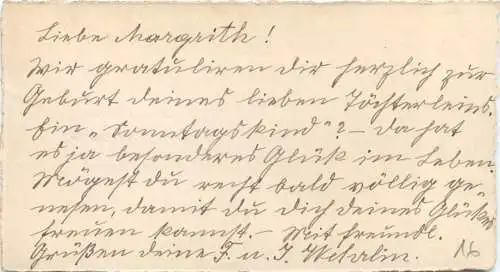 Liebe Margrith!
Wir gratuliren dir herzlich zur
Geburt deines lieben Töchterleins.
Ein „Sonntagskind"? – da hat
es ja besonderes Glük im Leben.
Mögest du recht bald völlig ge-
nesen, damit du dich deines Glükes
freuen kannst. – Mit freundl.
Grüßen deine F. u. J.
16